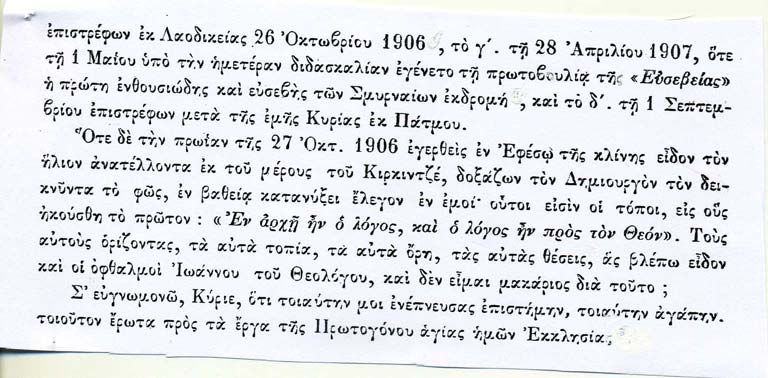 ἐπιστρέφων ἐκ Λαοδικείας 26 Ὀκτωβρίου 1906, τὸ γ΄. τῇ 28 Ἀπριλίου 1907, ὅτε
τῇ 1 Μαΐου ὑπὸ τὴν ἡμετέραν διδασκαλίαν ἐγένετο τῇ πρωτοβουλίᾳ τῆς «Εὐσεβείας»
ἡ πρώτη ἐνθουσιώδης καὶ εὐσεβὴς τῶν Σμυρναίων ἐκδρομή, καὶ τὸ δ΄. τῇ 1 Σεπτεμ-
βρίου ἐπιστρέφων μετὰ τῆς ἐμῆς Κυρίας ἐκ Πάτμου.
Ὅτε δὲ τὴν πρωΐαν τῆς 27 Ὀκτ. 1906 ἐγερθεὶς ἐν Ἐφέσῳ τῆς κλίνης εἶδον τὸν
ἥλιον ἀνατέλλοντα ἐκ τοῦ μέρους τοῦ Κιρκιντζέ, δοξάζων τὸν Δημιουργὸν τὸν δει-
κνῦντα τὸ φῶς, ἐν βαθείᾳ κατανύξει ἔλεγον ἐν ἐμοί· οὗτοι εἰσὶν οἱ τόποι, εἰς οὓς
ἠκούσθη τὸ πρῶτον : «Ἐν ἀρχῇ ἦν ὁ λόγος, καὶ ὁ λόγος ἦν πρὸς τὸν Θεόν». Τοὺς
αὐτοὺς ὁρίζοντας, τὰ αὐτὰ τοπία, τὰ αὐτὰ ὄρη, τὰς αὐτὰς θέσεις, ἃς βλέπω εἶδον
καὶ οἱ ὀφθαλμοὶ Ἰωάννου τοῦ Θεολόγου, καὶ δὲν εἶμαι μακάριος διὰ τοῦτο ;
Σ' εὐγνωμονῶ, Κύριε, ὅτι τοιαύτην μοι ἐνέπνευσας ἐπιστήμην, τοιαύτην ἀγάπην.
τοιοῦτον ἔρωτα πρὸς τὰ ἔργα τῆς Πρωτογόνου ἁγίας ἡμῶν Ἐκκλησίας